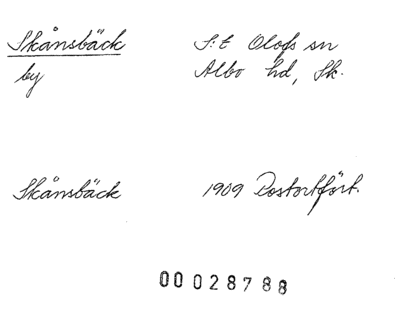 Skånsbäck S:t Olofs sn
by Albo hd, Sk.
Skånsbäck 1909 Postortfört.
00028788